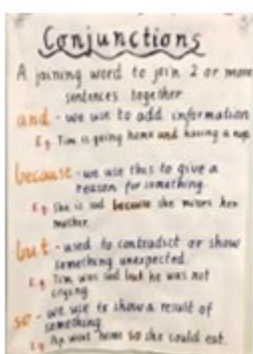 Conjunctions
A joining word to join 2 or more
sentences together
and - we use to add information
E.g. Tim is going home and having a nap.
because - we use this to give a
reason for something.
E.g. She is sad because she misses her
mother.
but - used to contradict or show
something unexpected.
E.g. Tim was sad but he was not
crying.
so - we use to show a result of
something.
E.g. went home so she could eat.